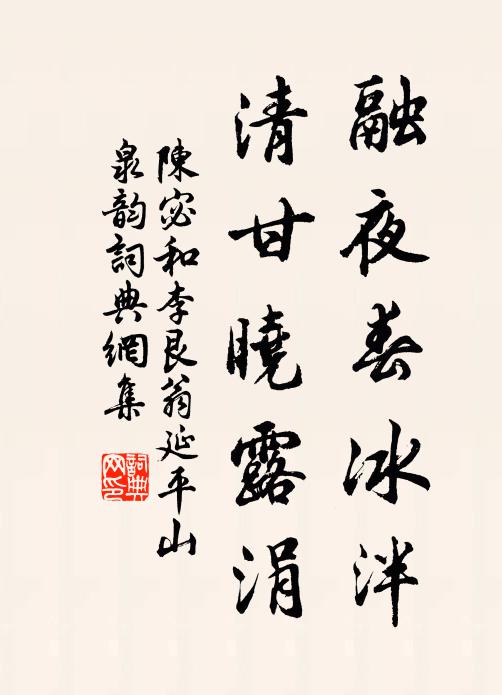 融夜春冰泮
清甘曉露涓
陳宓和李艮翁延平山
泉韵詞典網集
詞典网印